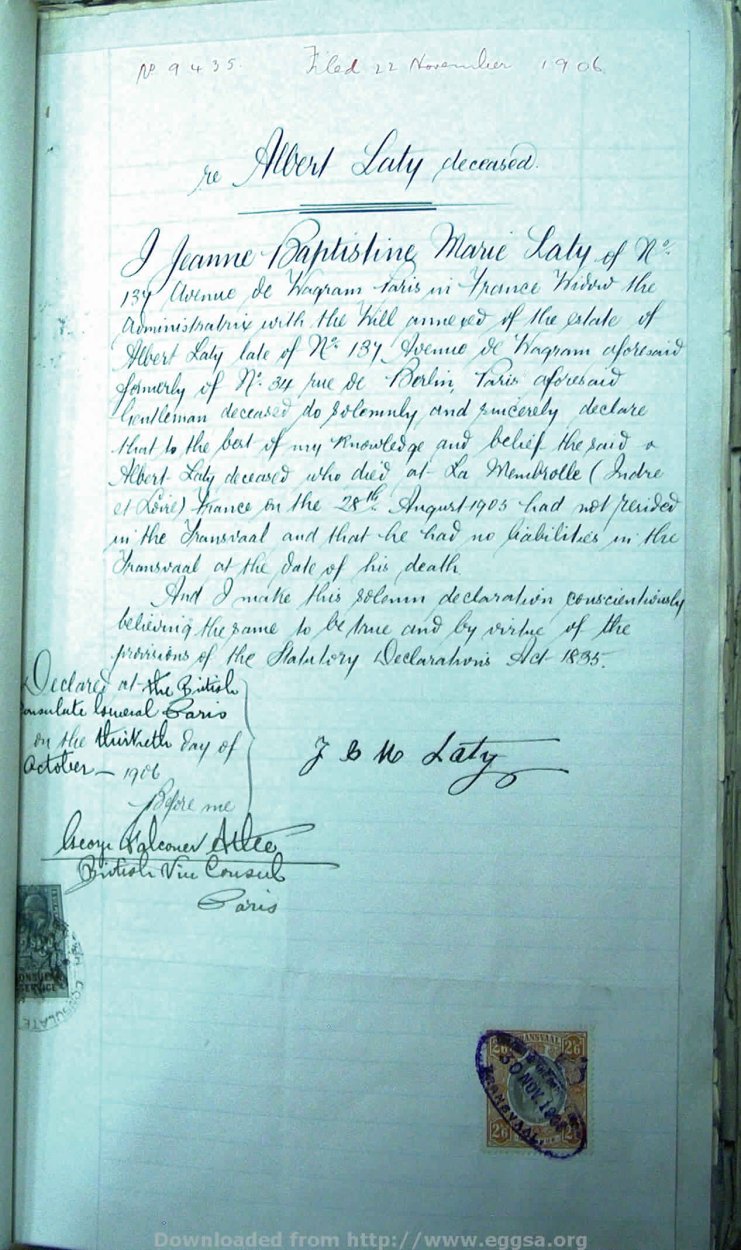 No 9435. Filed 22 November 1906
re Albert Laty deceased.
I Jeanne Baptistine Marie Laty of No.
137 Avenue de Wagram Paris in France Widow the
Administratrix with the Will annexed of the estate of
Albert Laty late of No. 137 Avenue de Wagram aforesaid
formerly of No. 34 rue de Berlin, Paris aforesaid
Gentleman deceased do solemnly and sincerely declare
that to the best of my knowledge and belief the said
Albert Laty deceased who died at La Membrolle (Indre
et Loire) France on the 28th August 1905 had not resided
in the Transvaal and that he had no liabilities in the
Transvaal at the date of his death
And I make this solemn declaration conscientiously
believing the same to be true and by virtue of the
provisions of the Statutory Declarations Act 1835.
Declared at the British
Consulate General Paris
on the thirtieth day of
October 1906
Before me
J B M Laty
George Falconer Atlee
British Vice Consul
Paris
CONSULAR
SERVICE
CONSULATE
TRANSVAAL
2/6 2/6
30 NOV 190
TRANSVAAL
2/6 2/6
Downloaded from http://www.eggsa.org